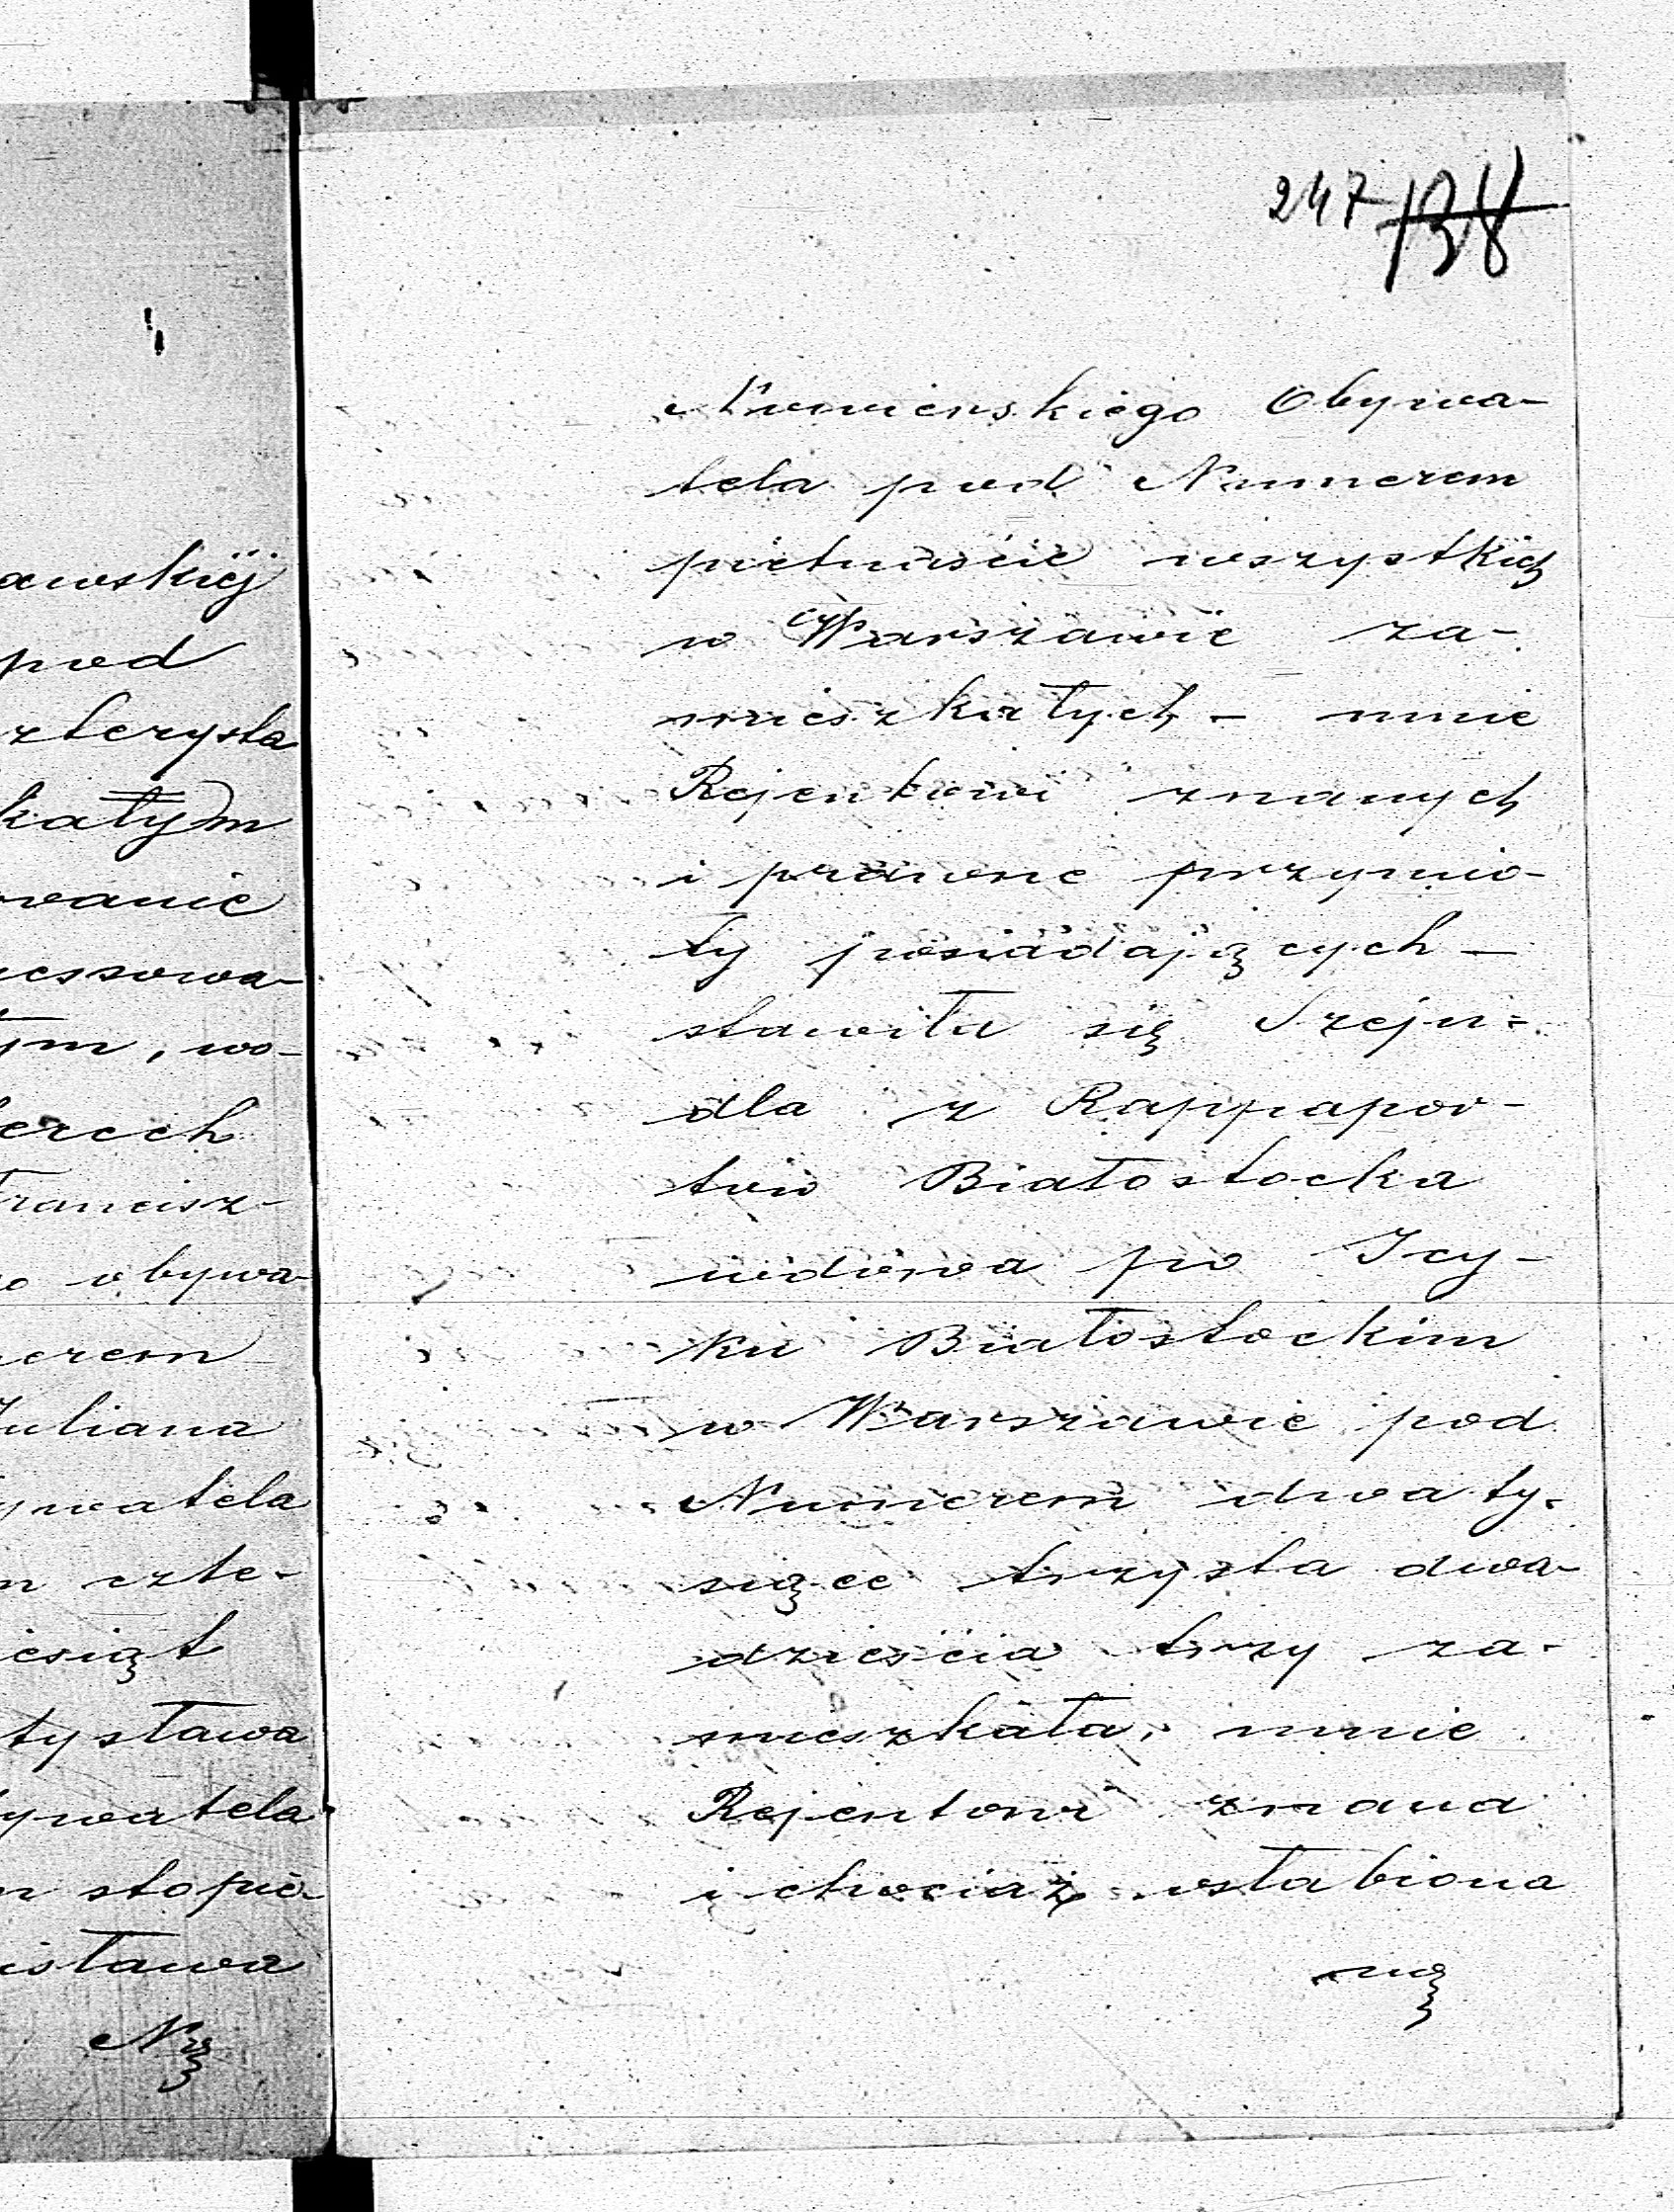 247 138
Niemierskiego Obywa-
tela pod Numerem
piętnaście wszystkich
w Warszawie za-
mieszkałych – mnie
Rejentowi znanych
i prawne przymio-
ty posiadających –
stawiła się Szejn-
dla z Rappapor-
tów Białostocka
wdowa po Icy-
ku Białostockim
w Warszawie pod
Numerem dwa ty-
siące trzysta dwa-
dzieścia trzy za-
mieszkała, mnie
Rejentowi znana
i chociaż osłabiona
na
awskiéj
pod
czterysta
kałym
owanie
essowa-
ym, wo-
terech
Francisz-
o obywa-
erem
Juliana
ywatela
m czte-
iesiąt
tysława
ywatela
stopię
isława
N